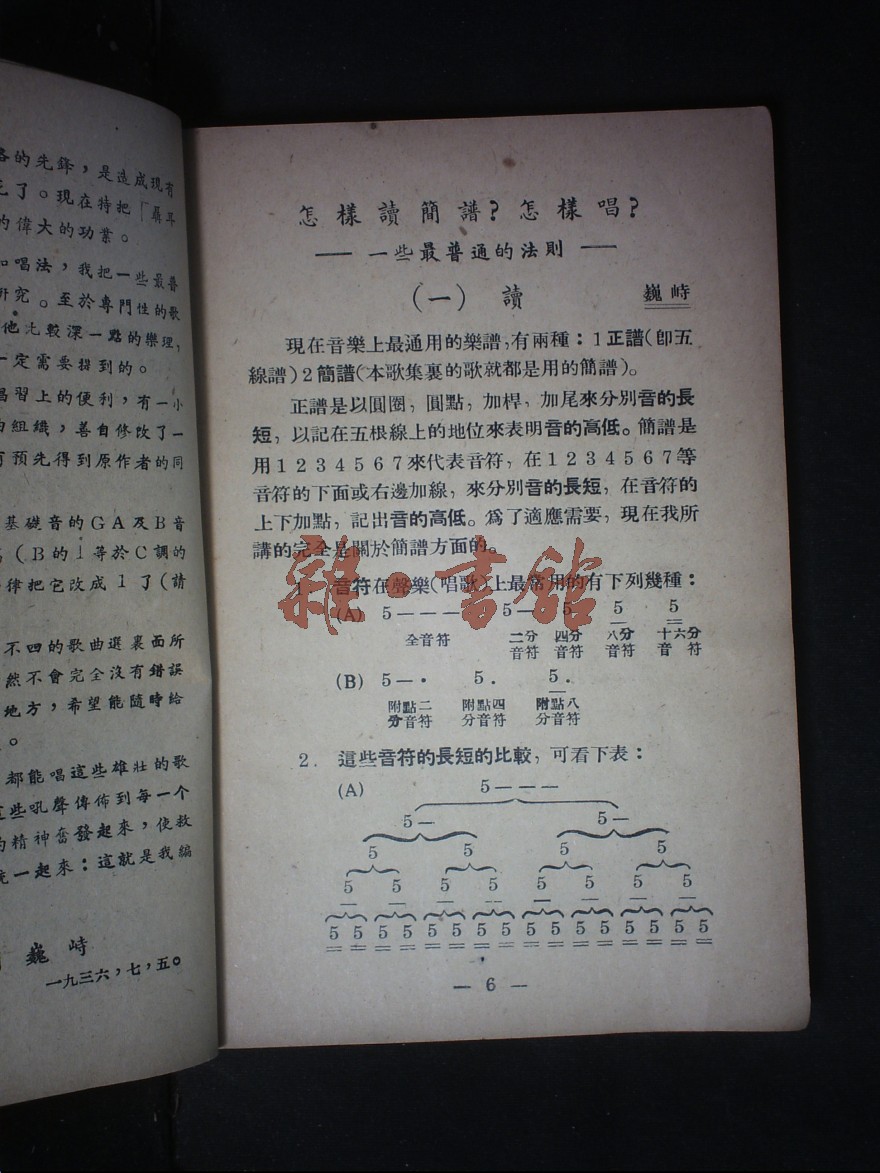 各的先鋒，是造成現有
了。現在特把「聶耳
的偉大的功業。
和唱法，我把一些最普
研究。至於專門性的歌
他比較深一點的樂理，
一定需要揩到的。
習上的便利，有一小
的組織，善自修改了一
有預先得到原作者的同
基礎音的GA及B音
（B的1等於C調的
律把它改成1了（請
不四的歌曲選裏面所
然不會完全沒有錯誤
地方，希望能隨時給
。
都能唱這些雄壯的歌
這些吼聲傳佈到每一个
的精神奮發起來，使救
一起來：這就是我編
巍峙
一九三六，七，五。
怎樣讀簡譜？怎樣唱？
—— 一些最普通的法則 ——
（一） 讀
巍峙
現在音樂上最通用的樂譜，有兩種：1正譜（卽五
線譜）2簡譜（本歌集裏的歌就都是用的簡譜）。
正譜是以圓圈，圓點，加桿，加尾來分別音的長
短，以記在五根線上的地位來表明音的高低。簡譜是
用1 2 3 4 5 6 7來代表音符，在1 2 3 4 5 6 7等
音符的下面或右邊加線，來分別音的長短，在音符的
上下加點，記出音的高低。爲了適應需要，現在我所
講的完全是關於簡譜方面的。
1 音符在聲樂（唱歌）上最常用的有下列幾種：
(A) 5 — — — 5 — 5 5 5
全音符 二分音符 四分音符 八分音符 十六分音符
(B) 5 — · 5 . 5 .
附點二分音符 附點四分音符 附點八分音符
2. 這些音符的長短的比較，可看下表：
(A) 5 — — —
5 — 5 —
5 5 5 5
5 5 5 5 5 5 5 5
5 5 5 5 5 5 5 5 5 5 5 5 5 5 5 5
— 6 —
雜·書館